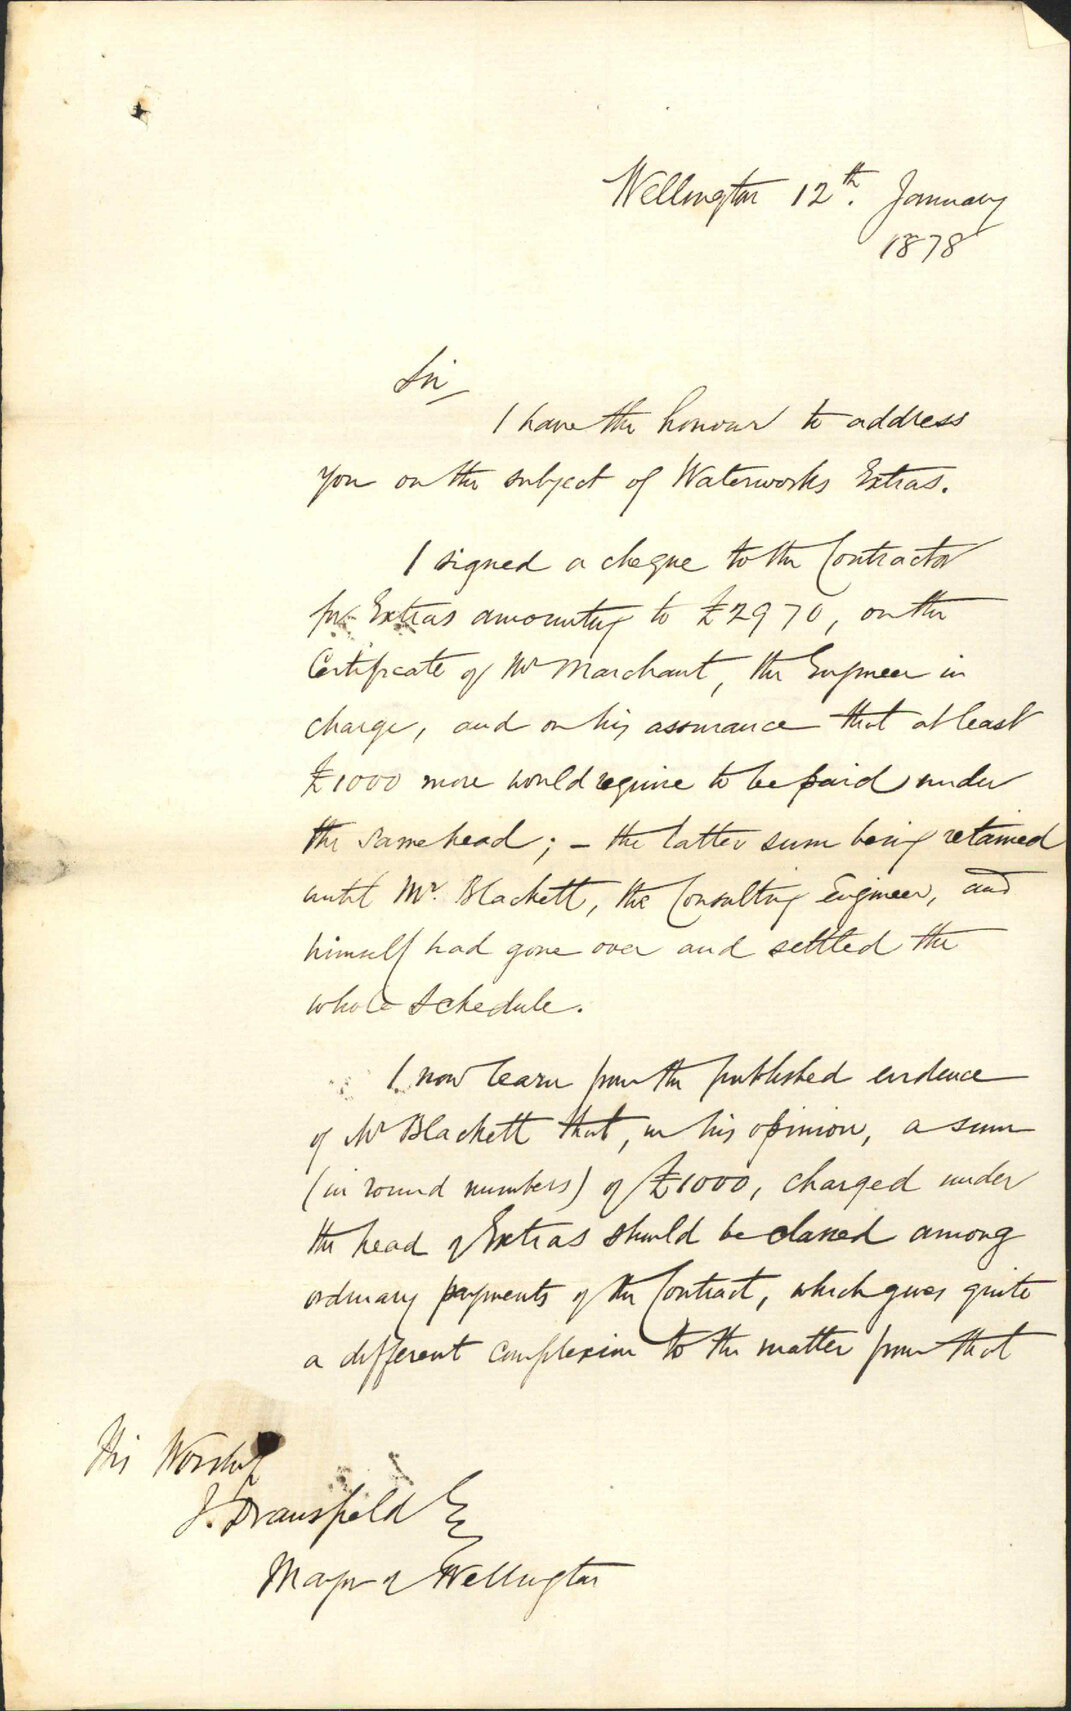 Wellington 12th. January
1878
Sir
I have the honour to address
you on the subject of Waterworks Extras.
I signed a cheque to the Contractor
for Extras amounting to £2970, on the
Certificate of Mr Marchant, the Engineer in
charge, and on his assurance that at least
£1000 more would require to be paid under
the same head; – the latter sum being retained
until Mr. Blackett, the Consulting Engineer, and
himself had gone over and settled the
whole Schedule.
I now learn from the published evidence
of Mr Blackett that, in his opinion, a sum
(in round numbers) of £1000, charged under
the head of Extras should be classed among
ordinary payments of the Contract, which gives quite
a different complexion to the matter from that
His Worship
J. Dransfield Esq
Mayor of Wellington